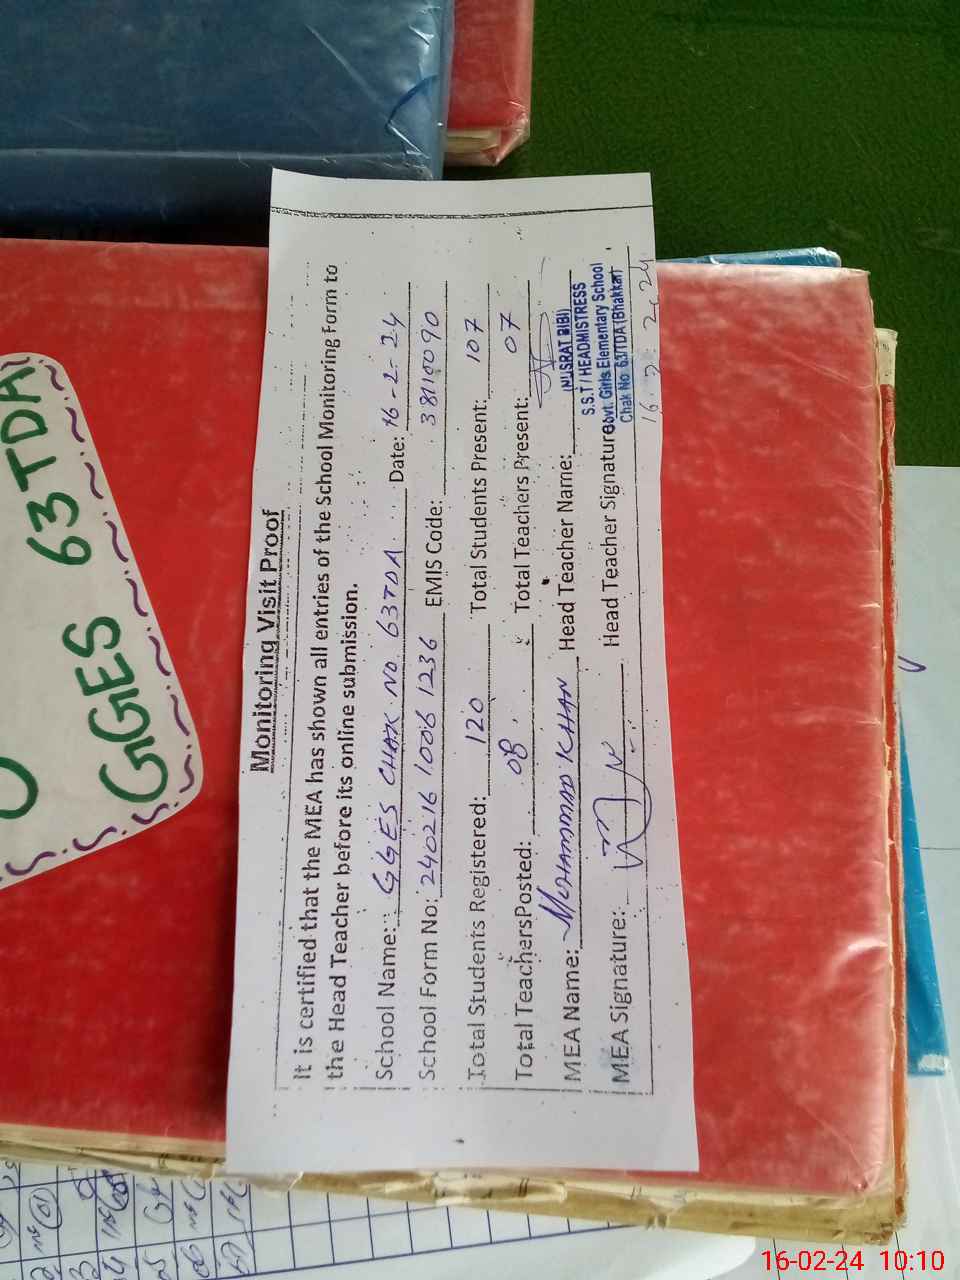 Monitoring Visit Proof
It is certified that the MEA has shown all entries of the School Monitoring Form to
the Head Teacher before its online submission.
School Name: GGES CHAK NO 63TDA Date: 16-2-24
School Form No: 240216 1006 1236 EMIS Code: 38110090
Total Students Registered: 120 Total Students Present: 107
Total TeachersPosted: 08 Total Teachers Present: 07
MEA Name: MUHAMMAD KHAN Head Teacher Name:
MEA Signature: Head Teacher Signature
(NUSRAT BIBI)
S.S.T / HEADMISTRESS
Govt. Girls Elementary School
Chak No 63/TDA (Bhakkar)
16 2 24
GGES 63TDA
16-02-24 10:10